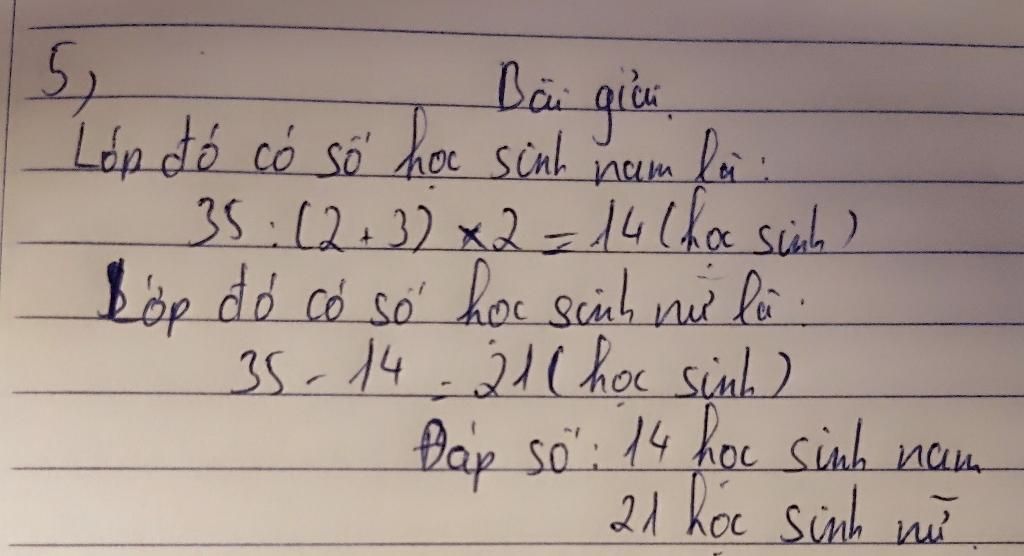 5)
Bài giải
Lớp đó có số học sinh nam là:
35 : (2 + 3) × 2 = 14 (học sinh)
Lớp đó có số học sinh nữ là:
35 - 14 = 21 (học sinh)
Đáp số: 14 học sinh nam
21 học sinh nữ.